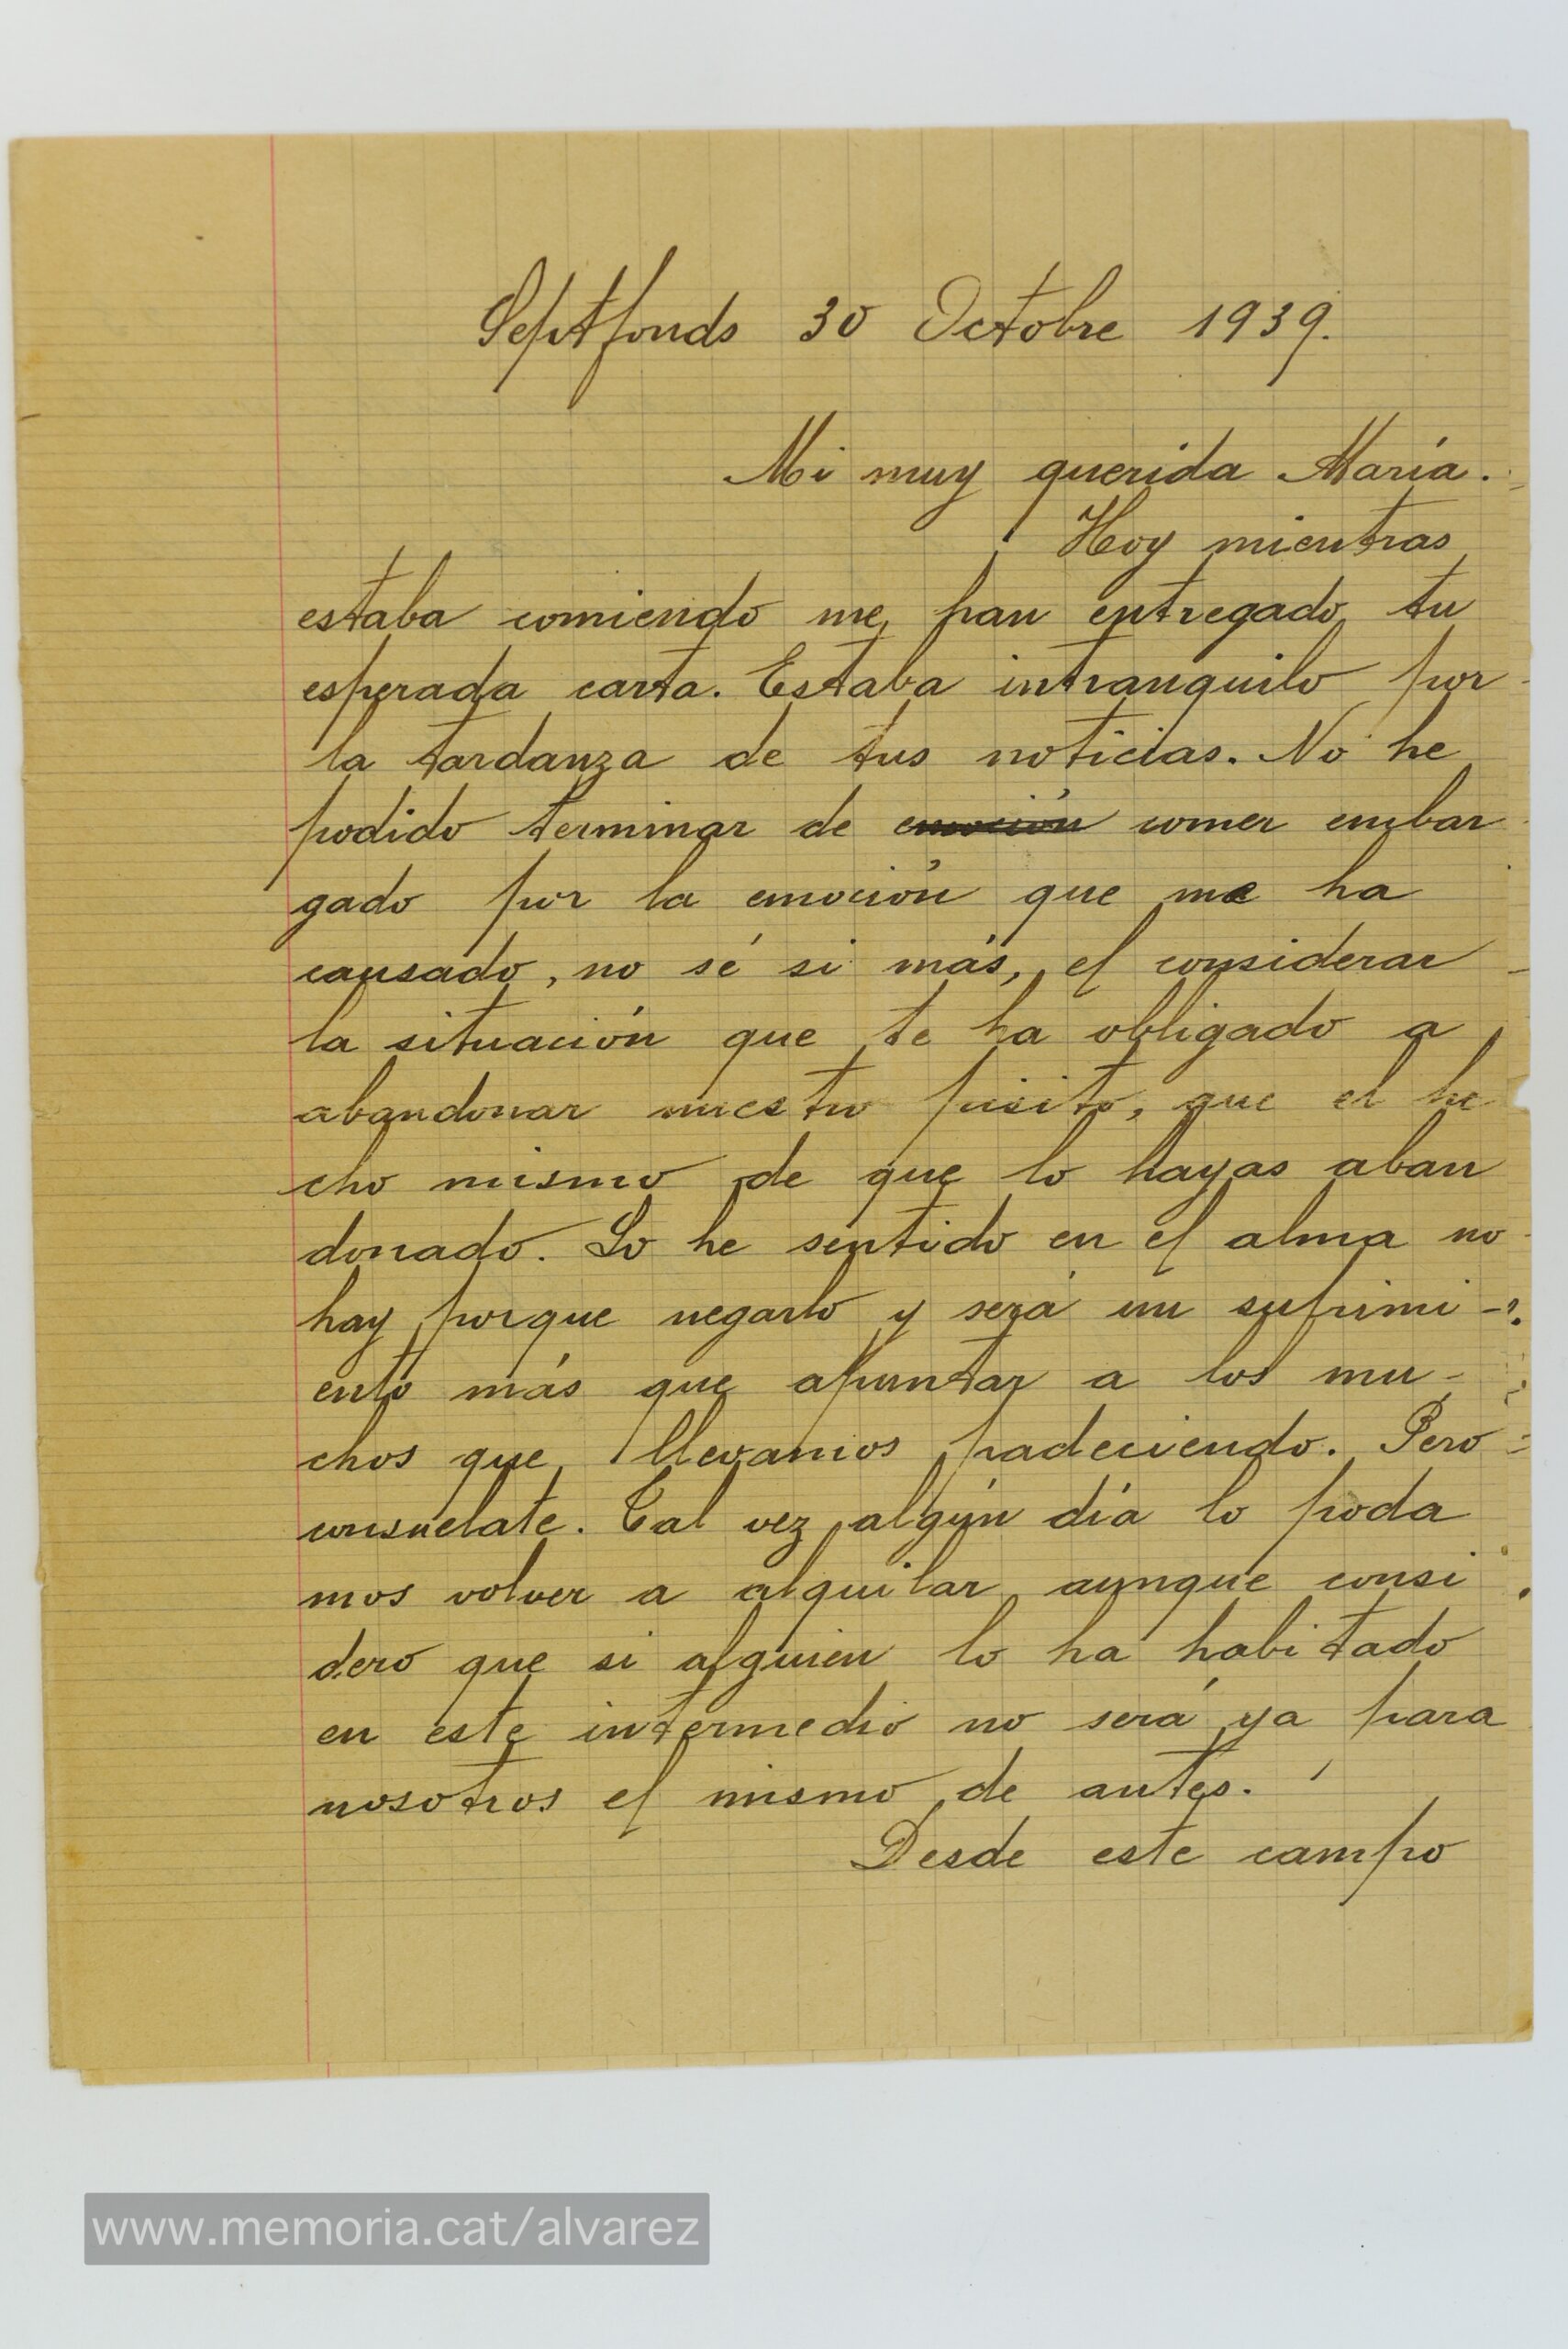 Septfonds 30 Octobre 1939.
Mi muy querida María.
Hoy mientras
estaba comiendo me han entregado tu
esperada carta. Estaba intranquilo por
la tardanza de tus noticias. No he
podido terminar de emoción comer embar
gado por la emoción que me ha
causado, no sé si más, el considerar
la situación que te ha obligado a
abandonar nuestro pisito, que el he
cho mismo de que lo hayas aban
donado. Lo he sentido en el alma no
hay porque negarlo y será un sufrimi-
ento más que apuntar a los mu-
chos que llevamos padeciendo. Pero
consuelate. Tal vez algún día lo poda
mos volver a alquilar aunque consi
dero que si alguien lo ha habitado
en este intermedio no será ya para
nosotros el mismo de antes.
Desde este campo
www.memoria.cat/alvarez